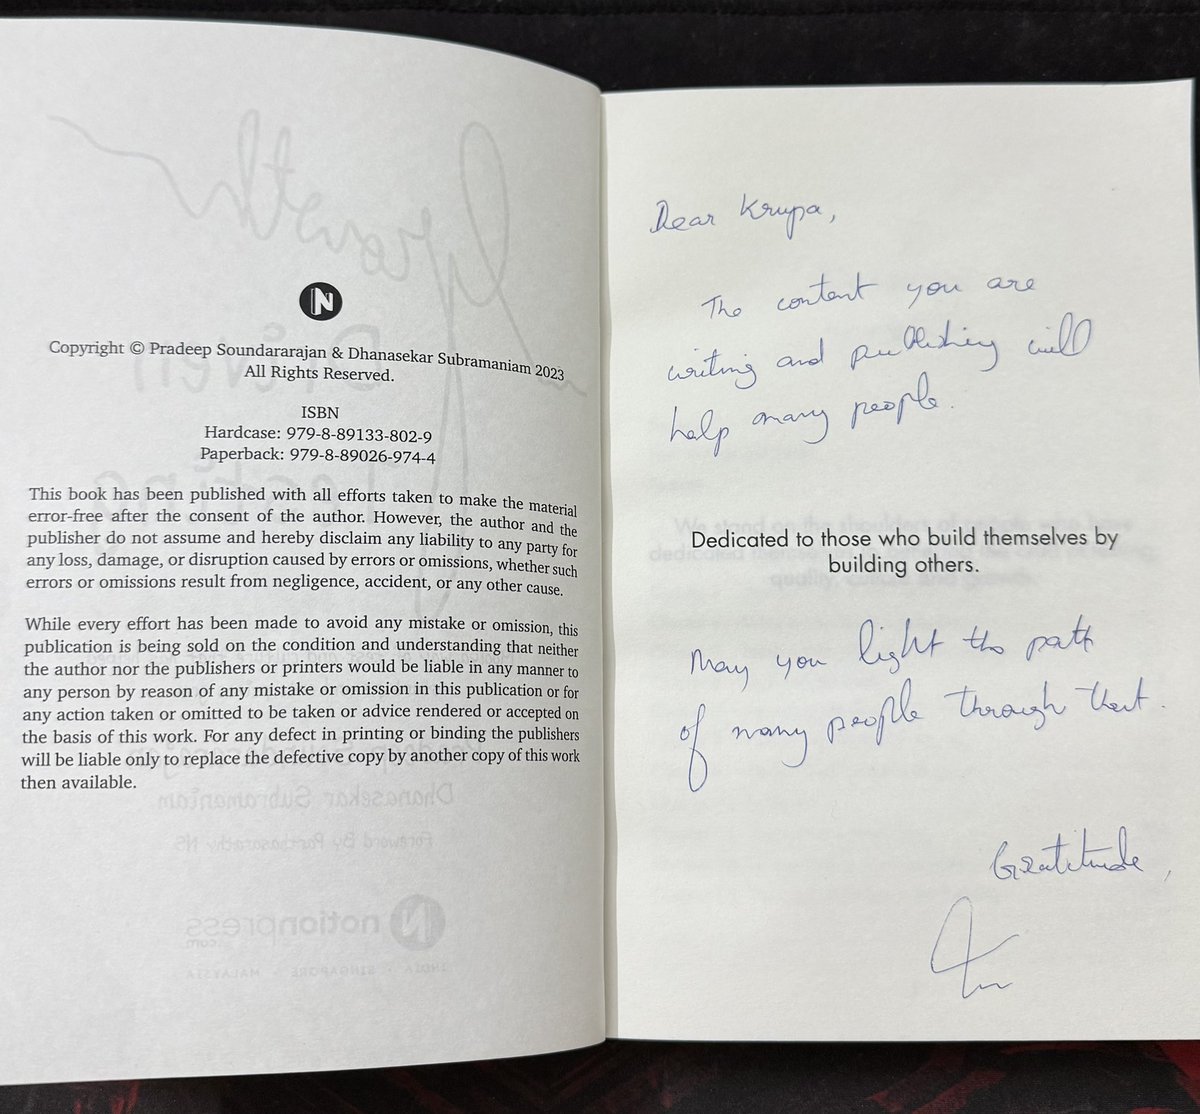 N
Copyright © Pradeep Soundararajan & Dhanasekar Subramaniam 2023
All Rights Reserved.
ISBN
Hardcase: 979-8-89133-802-9
Paperback: 979-8-89026-974-4
This book has been published with all efforts taken to make the material
error-free after the consent of the author. However, the author and the
publisher do not assume and hereby disclaim any liability to any party for
any loss, damage, or disruption caused by errors or omissions, whether such
errors or omissions result from negligence, accident, or any other cause.
While every effort has been made to avoid any mistake or omission, this
publication is being sold on the condition and understanding that neither
the author nor the publishers or printers would be liable in any manner to
any person by reason of any mistake or omission in this publication or for
any action taken or omitted to be taken or advice rendered or accepted on
the basis of this work. For any defect in printing or binding the publishers
will be liable only to replace the defective copy by another copy of this work
then available.
Dear Krupa,
The content you are
writing and publishing will
help many people.
Dedicated to those who build themselves by
building others.
May you light the path
of many people through that.
Gratitude,